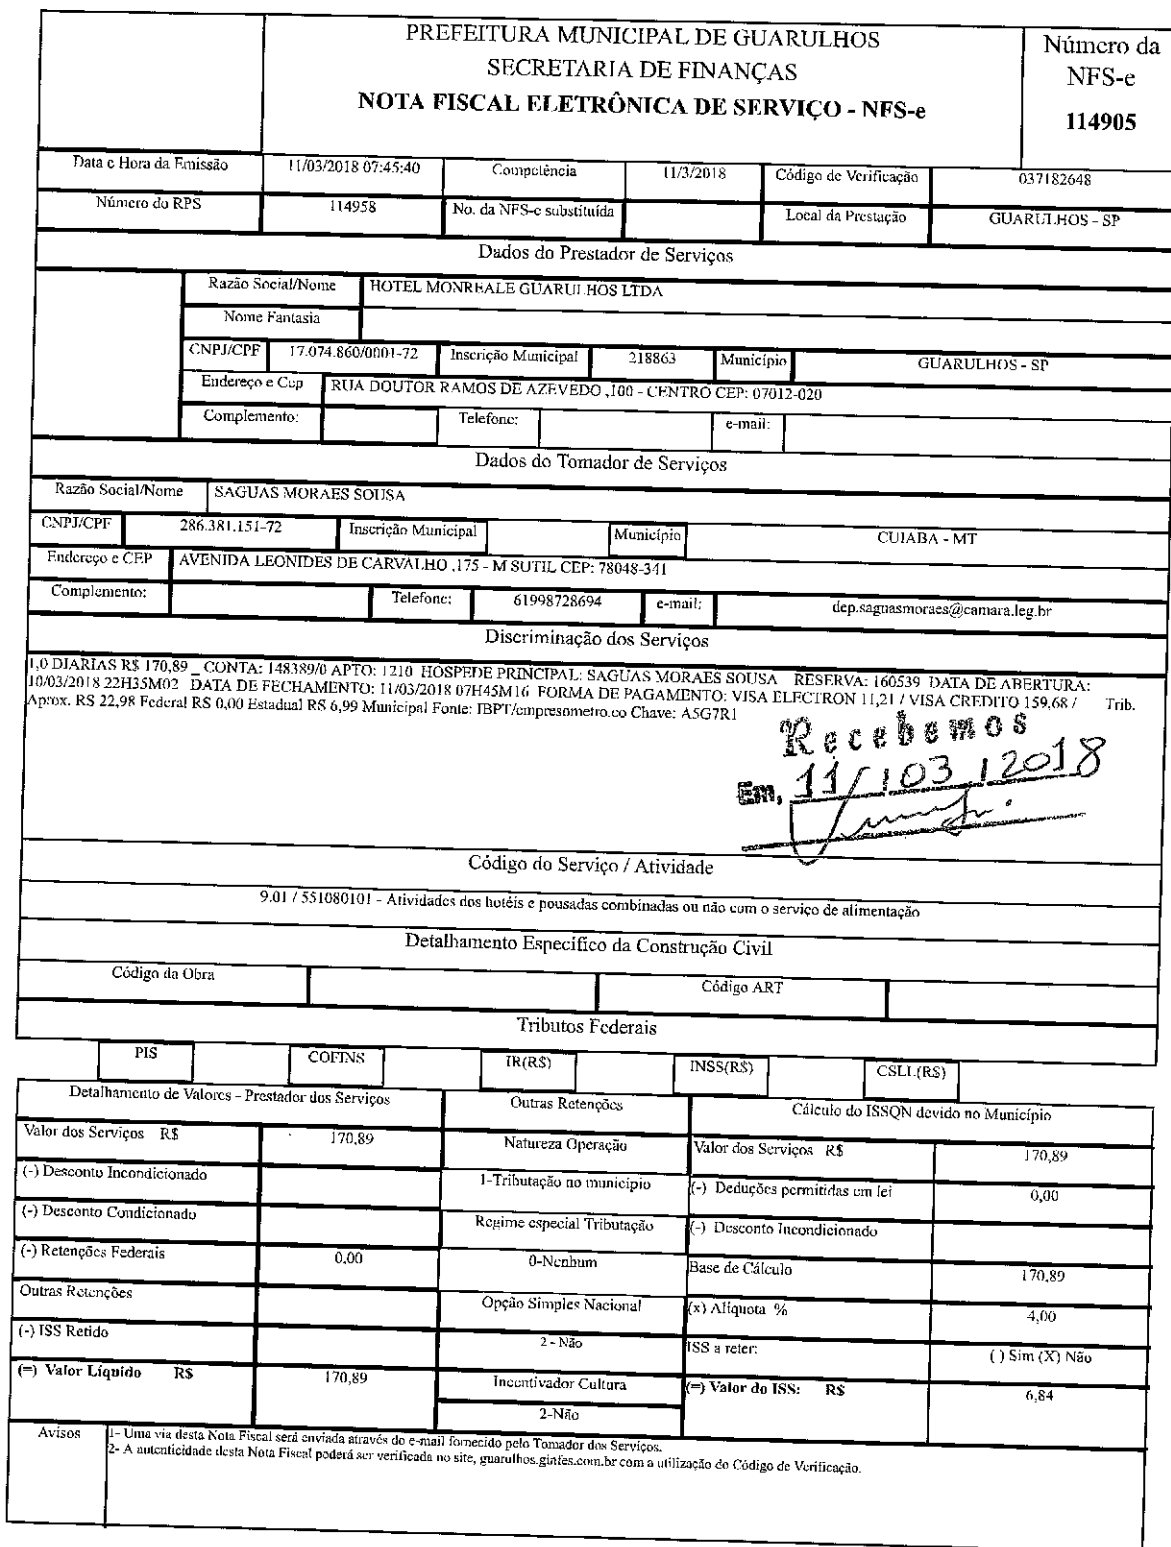 PREFEITURA MUNICIPAL DE GUARULHOS
SECRETARIA DE FINANÇAS
NOTA FISCAL ELETRÔNICA DE SERVIÇO - NFS-e
Número da
NFS-e
114905
Data e Hora da Emissão 11/03/2018 07:45:40 Competência 11/3/2018 Código de Verificação 037182648
Número do RPS 114958 No. da NFS-e substituída Local da Prestação GUARULHOS - SP
Dados do Prestador de Serviços
Razão Social/Nome HOTEL MONREALE GUARULHOS LTDA
Nome Fantasia
CNPJ/CPF 17.074.860/0001-72 Inscrição Municipal 218863 Município GUARULHOS - SP
Endereço e Cep RUA DOUTOR RAMOS DE AZEVEDO ,100 - CENTRO CEP: 07012-020
Complemento: Telefone: e-mail:
Dados do Tomador de Serviços
Razão Social/Nome SAGUAS MORAES SOUSA
CNPJ/CPF 286.381.151-72 Inscrição Municipal Município CUIABA - MT
Endereço e CEP AVENIDA LEONIDES DE CARVALHO ,175 - M SUTIL CEP: 78048-341
Complemento: Telefone: 61998728694 e-mail: dep.saguasmoraes@camara.leg.br
Discriminação dos Serviços
1,0 DIARIAS R$ 170,89 _ CONTA: 148389/0 APTO: 1210 HOSPEDE PRINCIPAL: SAGUAS MORAES SOUSA RESERVA: 160539 DATA DE ABERTURA:
10/03/2018 22H35M02 DATA DE FECHAMENTO: 11/03/2018 07H45M16 FORMA DE PAGAMENTO: VISA ELECTRON 11,21 / VISA CREDITO 159,68 / Trib.
Aprox. R$ 22,98 Federal R$ 0,00 Estadual R$ 6,99 Municipal Fonte: IBPT/empresometro.co Chave: A5G7R1
Recebemos
Em, 11/03/2018
Código do Serviço / Atividade
9.01 / 551080101 - Atividades dos hotéis e pousadas combinadas ou não com o serviço de alimentação
Detalhamento Especifico da Construção Civil
Código da Obra Código ART
Tributos Federais
PIS COFINS IR(R$) INSS(R$) CSLL(R$)
Detalhamento de Valores - Prestador dos Serviços Outras Retenções Cálculo do ISSQN devido no Município
Valor dos Serviços R$ 170,89 Natureza Operação Valor dos Serviços R$ 170,89
(-) Desconto Incondicionado 1-Tributação no municipio (-) Deduções permitidas em lei 0,00
(-) Desconto Condicionado Regime especial Tributação (-) Desconto Incondicionado
(-) Retenções Federais 0,00 0-Nenhum Base de Cálculo 170,89
Outras Retenções Opção Simples Nacional (x) Alíquota % 4,00
(-) ISS Retido 2 - Não ISS a reter: ( ) Sim (X) Não
(=) Valor Líquido R$ 170,89 Incentivador Cultura (=) Valor do ISS: R$ 6,84
2-Não
Avisos 1- Uma via desta Nota Fiscal será enviada através do e-mail fornecido pelo Tomador dos Serviços.
2- A autenticidade desta Nota Fiscal poderá ser verificada no site, guarulhos.ginfes.com.br com a utilização do Código de Verificação.